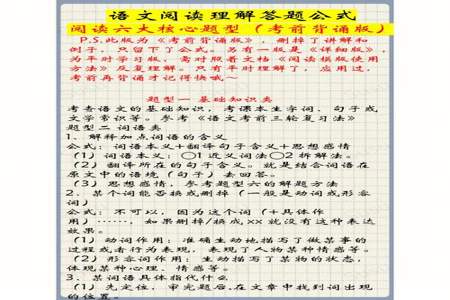 语文阅读理解答题公式
阅读六大核心题型(考前背诵版)
P.S.此版为《考前背诵版》,删掉了讲解和
例子,只留下了公式。另有一版是《详细版》,
为平时学习版,需对照着文档《阅读模版使用
方法》反复理解。只有平时理解了,应用过,
考前再背诵才记得快哦~
题型一 基础知识类
考查语文的基础知识,考课本生字词、句子或
文学常识等。参考《语文考前三轮复习法》
题型二 词语类
1、解释加点词语的含义
公式:词语本义+翻译句子含义+思想感情
(1)词语本义:○1近义词法○2拆解法。
(2)翻译所在的句子含义。就是结合词语在
原文中的语境(句子)去回答。
(3)思想感情,参考题型六的解题方法
2、某个词能否换或删掉(一般是动词或形容
词)
公式:不可以,因为这个词(+具体作
用)……,如果删掉/换成xx就没有这种表达
效果。
(1)动词作用:准确生动地描写了做某事的
过程或者行为表现,表现了人物某种情感等。
(2)形容词作用:生动描写了某物的状态,
体现某种心理、情感等。
3、某词语具体指代什么
(1)先定位,审完题后在文章中找到词出现
的位置。